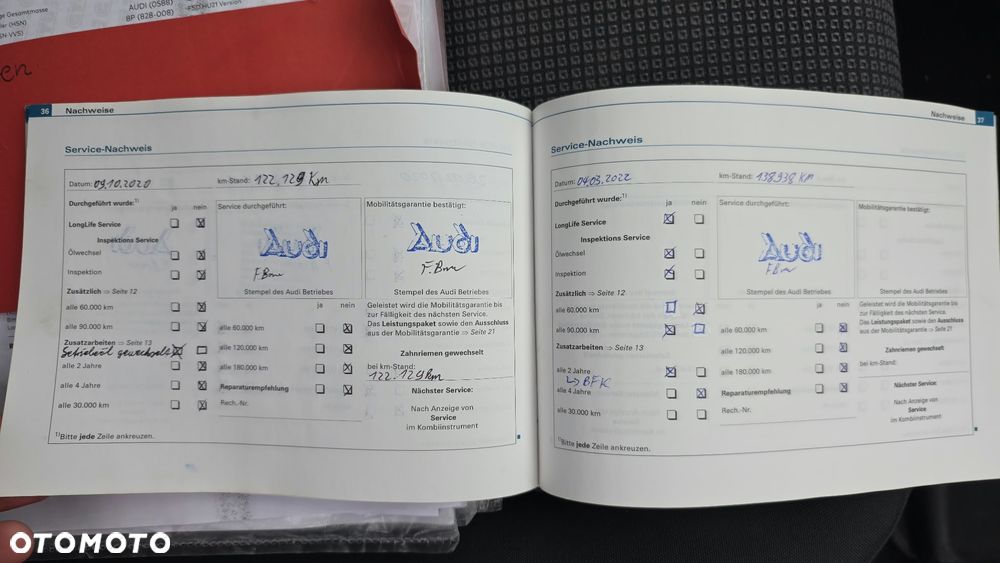 ge Gesamtmasse
ler (HSN)
AUDI (0588)
BP (828-008)
en
36 Nachweise
Service-Nachweis
Datum: 09.10.2020 km-Stand: 122.129 Km
Durchgeführt wurde:1) ja nein
LongLife Service
Inspektions Service
Ölwechsel
Inspektion
Zusätzlich ⇒ Seite 12
alle 60.000 km
alle 90.000 km
Zusatzarbeiten ⇒ Seite 13
gewechselt
alle 2 Jahre
alle 4 Jahre
alle 30.000 km
Service durchgeführt:
Audi
Stempel des Audi Betriebes
ja nein
alle 60.000 km
alle 120.000 km
alle 180.000 km
Reparaturempfehlung
Rech.-Nr.
Mobilitätsgarantie bestätigt:
Audi
Stempel des Audi Betriebes
Geleistet wird die Mobilitätsgarantie bis
zur Fälligkeit des nächsten Service.
Das Leistungspaket sowie den Ausschluss
aus der Mobilitätsgarantie ⇒ Seite 21
Zahnriemen gewechselt
bei km-Stand:
122.129 Km
Nächster Service:
Nach Anzeige von
Service
im Kombiinstrument
1)Bitte jede Zeile ankreuzen.
Nachweise 37
Service-Nachweis
Datum: 04.03.2022 km-Stand: 138938 KM
Durchgeführt wurde:1) ja nein
LongLife Service
Inspektions Service
Ölwechsel
Inspektion
Zusätzlich ⇒ Seite 12
alle 60.000 km
alle 90.000 km
Zusatzarbeiten ⇒ Seite 13
alle 2 Jahre
↳ BFK
alle 4 Jahre
alle 30.000 km
Service durchgeführt:
Audi
Stempel des Audi Betriebes
ja nein
alle 60.000 km
alle 120.000 km
alle 180.000 km
Reparaturempfehlung
Rech.-Nr.
Mobilitätsgarantie bestätigt:
Stempel des Audi Betriebes
Geleistet wird die Mobilitätsgarantie bis
zur Fälligkeit des nächsten Service.
Das Leistungspaket sowie den Ausschluss
aus der Mobilitätsgarantie ⇒ Seite 21
Zahnriemen gewechselt
bei km-Stand:
Nächster Service:
Nach Anzeige von
Service
im Kombiinstrument
1)Bitte jede Zeile ankreuzen.
OTOMOTO